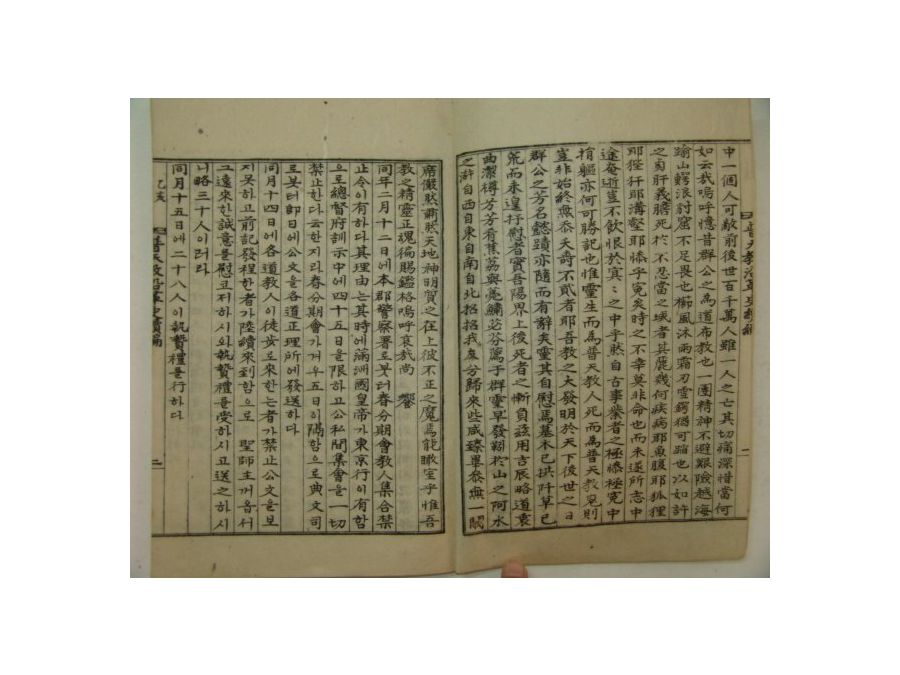 普天教沿革史續編
中一個人可敵前後世百千萬人雖一人之亡其切痛深措當何
如云我嗚呼憶昔群公之為道布教也一團精神不避艱險越海
踰山鰐浪豹窟不足畏也櫛風沐雨霜刃雪鍔猶可蹈也以如許
之肅肝義膽死於不忍當之域者其麗幾何疾病耶魚腹耶狐狸
耶狴犴耶溝壑耶搽乎冤矣時之不幸莫非命也而未遂所志中
途奄逝豈不飲恨於冥冥之中乎然自古事業者之極搽極冤中
捐軀亦何可勝記也惟靈生而為普天教人死而為普天教鬼則
豈非始終無忝天奇不貳者耶吾教之大發明於天下後世之日
群公之芳名懿蹟亦隨而有辭矣靈其自慰焉墓木已拱阡草已
荒而未遑抒慰者實吾陽界上後死者之慚負玆用吉辰略道衷
曲潔樽芳芳有蕉荔與亮鱐苾芬薦于群靈早發軔於山之阿水
之滸自西自東自南自北招招我魂分歸來些咸臻畢忝無一闕
席儼然肅然天地神明賀之在上彼不正之魔焉能瞰室乎惟吾
教之精靈正魂徧賜鑑格嗚呼哀哉尚 饗
同年二月十二日에本郡警察署로봇터春分期會教人集合禁
止令이有하다其理由는其時에滿洲國皇帝가東京行이有함
으로總督府訓示中에四十五日을限하고公私間集會을一切
禁止한다云한지라春分期會가겨우五日이隔함으로典文司
로봇터卽日에公文을各道正理所에發送하다
同月十四日에各道教人이徒步로來한는者가禁止公文을보
지못하고前記發程한者가陸續來到으로 聖師主게옵서
그遠來한誠意를慰코저하시와執贄禮를受하시고送之하시
니略三十人이러라
同月十五日에二十八人이執贄禮를行하다
乙亥
普天教沿革史續編
二